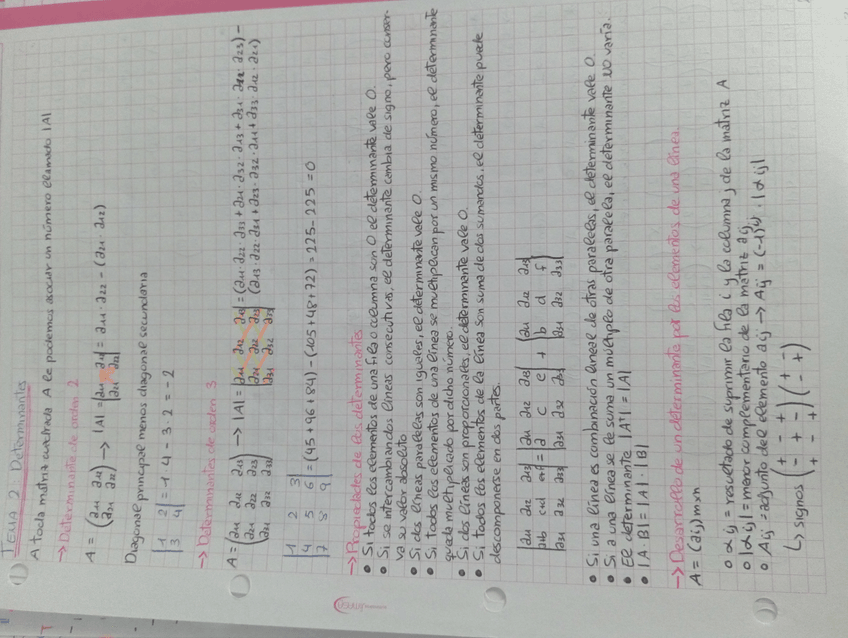 ① TEMA 2: Determinantes
A toda matriz cuadrada A le podemos asociar un número llamado |A|
→ Determinante de orden 2
A = (a11 a12 / a21 a22) → |A| = |a11 a12 / a21 a22| = a11 · a22 - (a21 · a12)
Diagonal principal menos diagonal secundaria
|1 2 / 3 4| = 1 · 4 - 3 · 2 = -2
→ Determinantes de orden 3
A = (a11 a12 a13 / a21 a22 a23 / a31 a32 a33) → |A| = |a11 a12 a13 / a21 a22 a23 / a31 a32 a33| =
|1 2 3 / 4 5 6 / 7 8 9| = (45 + 96 + 84) - (105 + 48 + 72) = 225 - 225 = 0
→ Propiedades de los determinantes
• Si todos los elementos de una fila o columna son 0 el determinante vale 0.
• Si se intercambian dos líneas consecutivas, el determinante cambia de signo, pero conser-
va su valor absoluto
• Si dos líneas paralelas son iguales, el determinante vale 0.
• Si todos los elementos de una línea se multiplican por un mismo número, el determinante
queda multiplicado por dicho número.
• Si dos líneas son proporcionales, el determinante vale 0.
• Si todos los elementos de la línea son suma de dos sumandos, el determinante puede
descomponerse en dos partes.
|a11 a12 a13 / a+b c+d e+f / a31 a32 a33| = |a11 a12 a13 / a c e / a31 a32 a33| + |a11 a12 a13 / b d f / a31 a32 a33|
• Si una línea es combinación lineal de otras paralelas, el determinante vale 0.
• Si a una línea se le suma un múltiplo de otra paralela, el determinante NO varía.
• El determinante |Aᵗ| = |A|
• |A · B| = |A| · |B|
→ Desarrollo de un determinante por los elementos de una línea.
A = (aij) mxn
○ αij = resultado de suprimir la fila i y la columna j de la matriz A
○ |αij| = menor complementario de la matriz aij
○ Aij = adjunto del elemento aij → Aij = (-1)ⁱʲ · |αij|
↳ signos (+ - + / - + - / + - +) (+ - / - +)